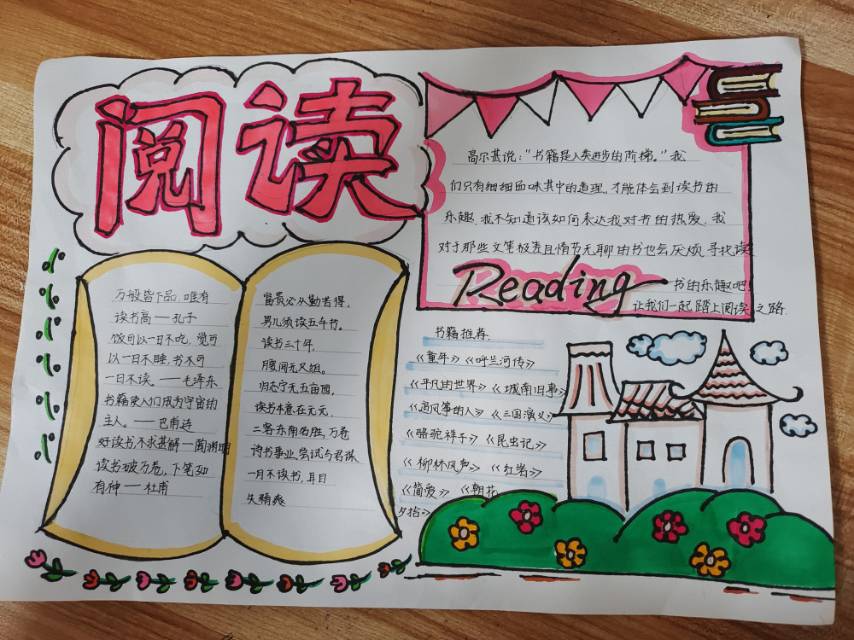 阅读
万般皆下品,唯有
读书高——孔子
饭可以一日不吃,觉可
以一日不睡,书不可
一日不读。——毛泽东
书籍使人们成为宇宙的
主人。——巴甫连
好读书不求甚解——陶渊明
读书破万卷,下笔如
有神——杜甫
富贵必从勤苦得,
男儿须读五车书。
读书三十年,
腰间无又组。
归志宁无五亩园,
读书本意在元元,
二客东南名胜,万卷
诗书事业,尝试与君谋
一月不读书,耳目
失精爽
高尔基说:“书籍是人类进步的阶梯。”我
们只有细细品味其中的道理,才能体会到读书的
乐趣,我不知道该如何表达我对书的热爱,我
对于那些文笔极差且情节无聊的书也会厌烦,寻找读
Reading 书的乐趣吧!
让我们一起踏上阅读之路
书籍推荐:
《童年》《呼兰河传》
《平凡的世界》《城南旧事》
《追风筝的人》《三国演义》
《骆驼祥子》《昆虫记》
《柳林风声》《红岩》
《简爱》《朝花
夕拾》